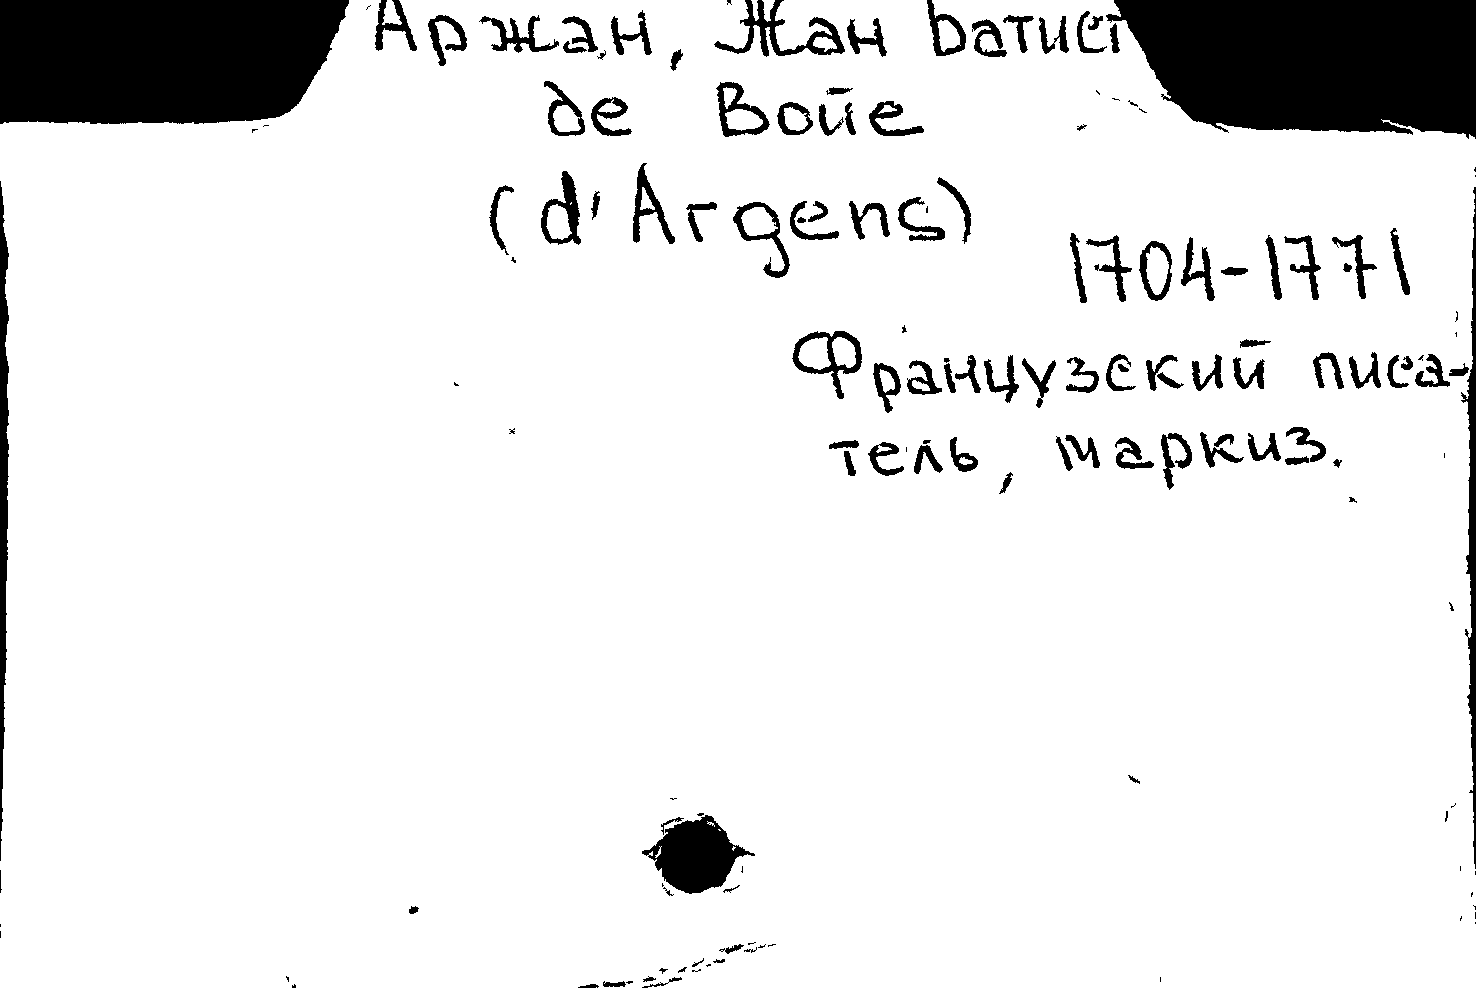 Аржан, Жан Батист
де Войе
(d'Argens)
1704-1771
Французский писа-
тель, маркиз.